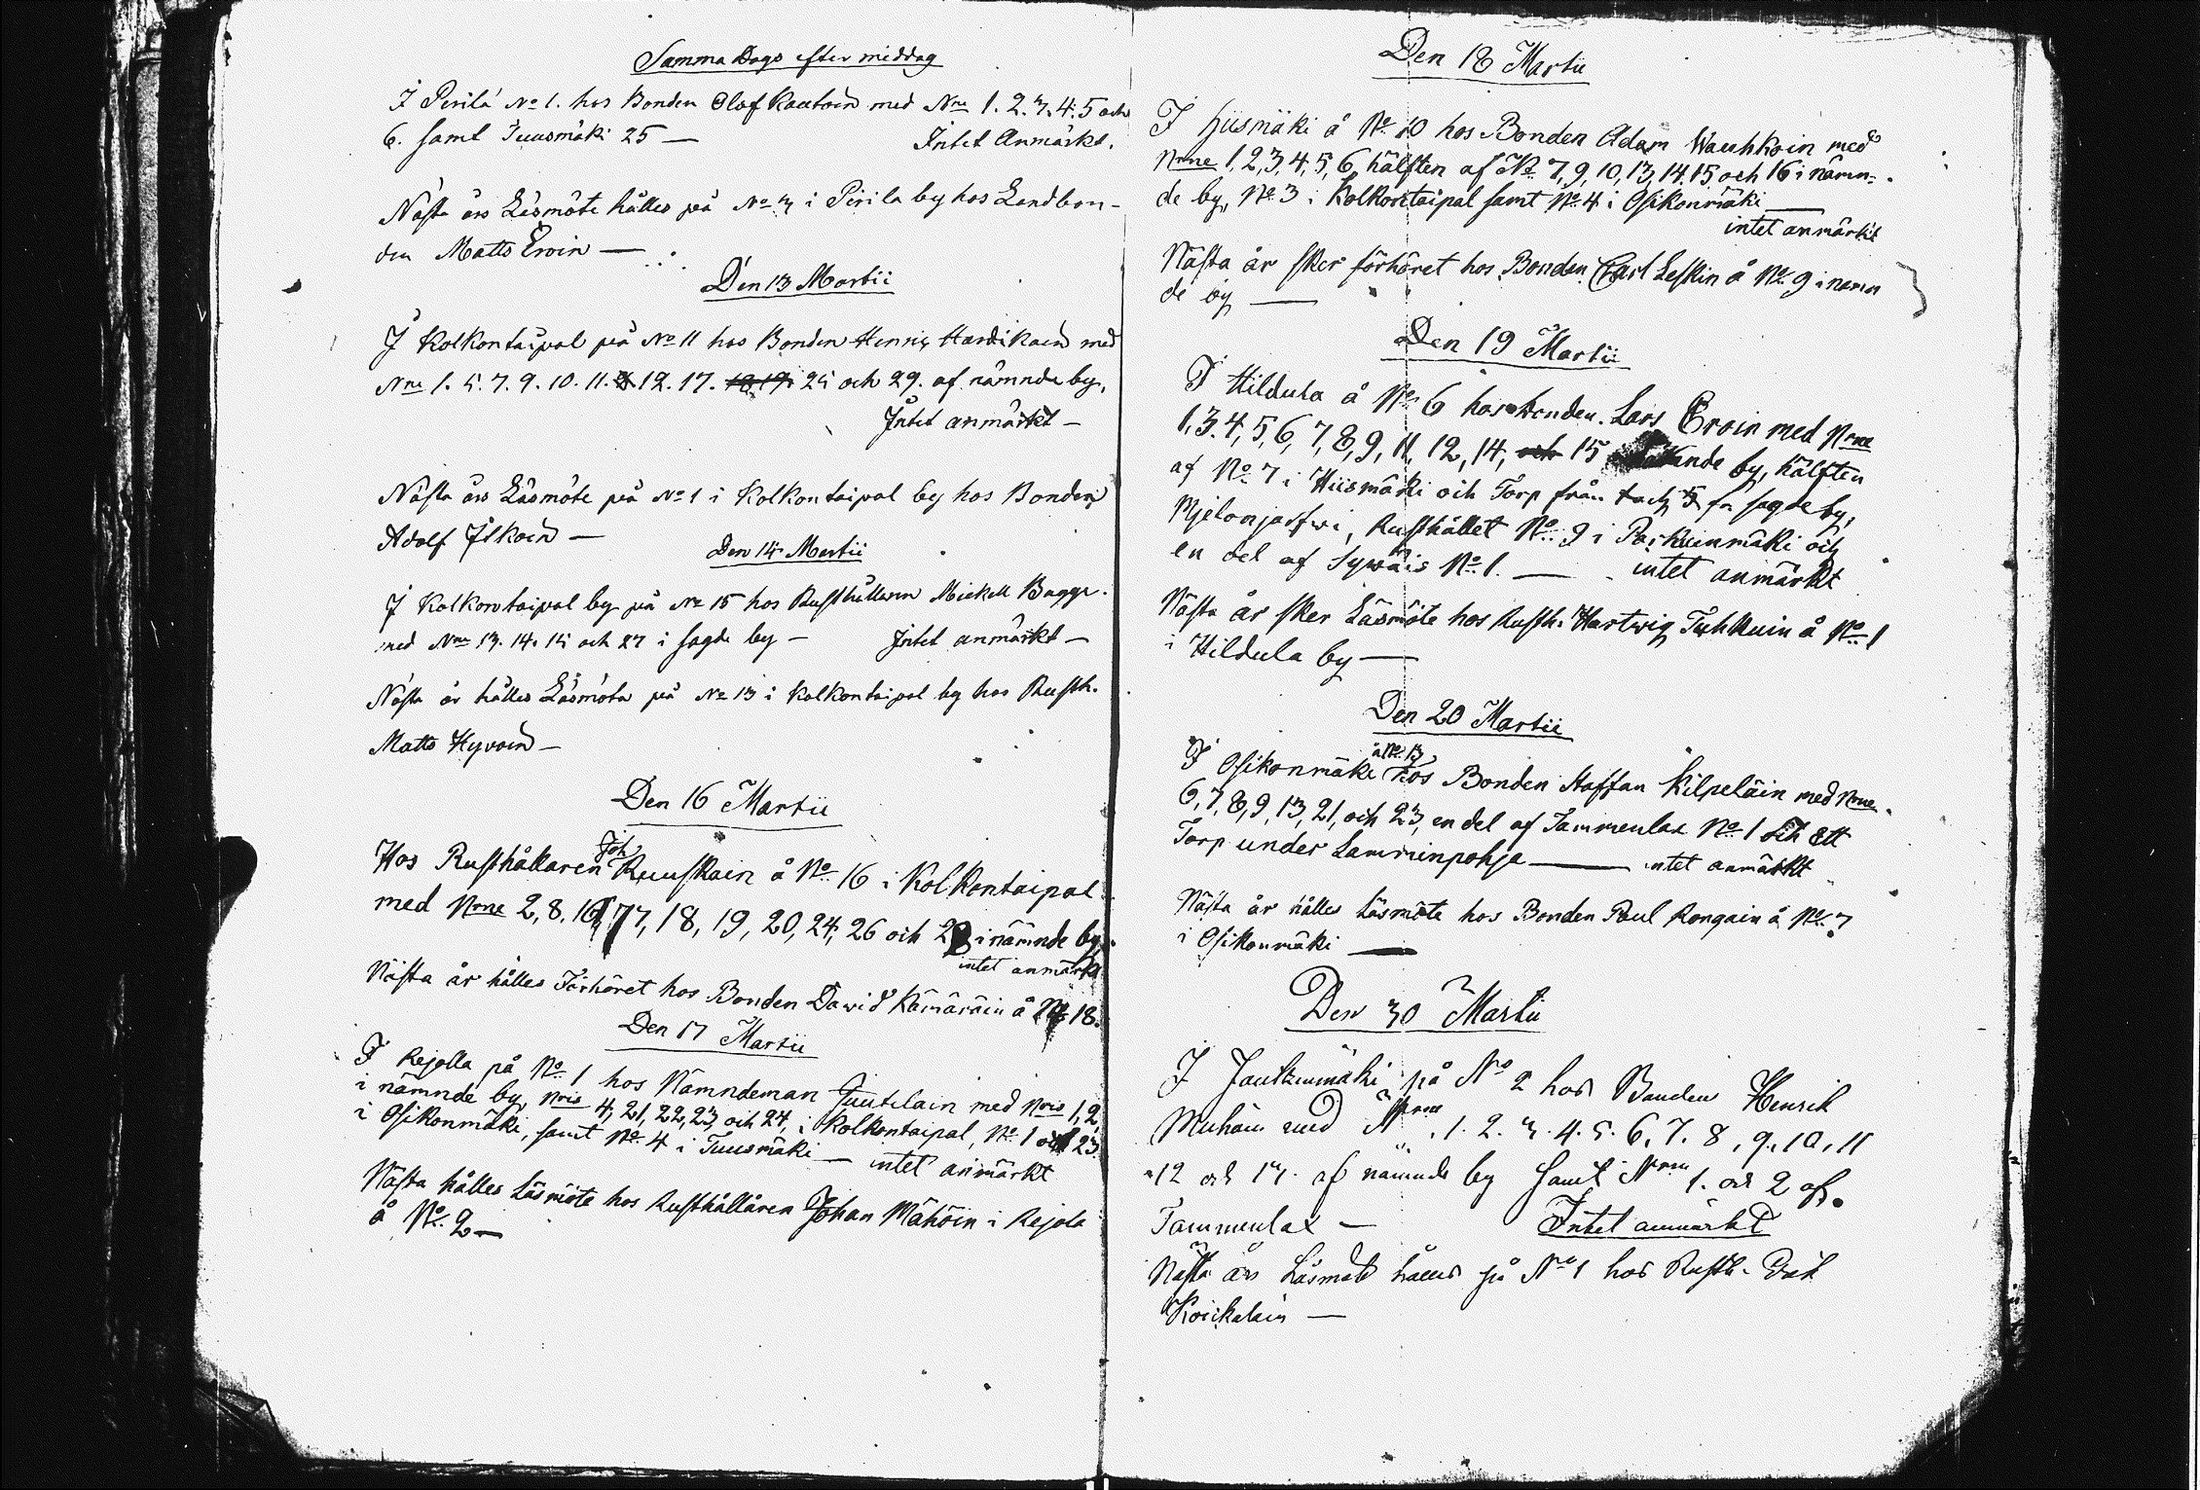 Samma Dags efter middag
I Pirilä No 1. hos Bonden Olof Kautoin med Nrne 1. 2. 3. 4. 5 och
6. samt Tuusmäki 25 — Intet Anmärkt.
Nästa års Läsmöte hålles på No 3 i Pirila by hos Landbon-
den Matts Eroin —
Den 13 Martii
I Kolkontaipal på No 11 hos Bonden Henric Hardikain med
Nrne 1. 5. 7. 9. 10. 11. 12. 17. 18. 19. 25 och 29. af nämnde by,
Intet anmärkt —
Nästa års Läsmöte på No 1 i Kolkontaipal by hos Bonden
Adolf Ilkoin —
Den 14 Martii
I Kolkontaipal by på No 15 hos Rusthållaren Mickel Bagge.
med Nrne 13. 14. 15 och 27 i sagde by — Intet anmärkt —
Nästa år hålles Läsmöte på No 13 i Kolkontaipal by hos Rusth.
Matts Hyvoin —
Den 16 Martii
Hos Rusthållaren Joh Ruuskain å No 16 i Kolkontaipal
med Nrne 2, 8, 16, 17, 18, 19, 20, 24, 26 och 28 i nämnde by.
intet anmärkt
Nästa år hålles Förhöret hos Bonden Dawid Kämäräin å No 18.
Den 17 Martii
I Rejolla på No 1 hos Nämndeman Juutilain med Nris 1, 2,
i nämnde by, Nris 4, 21, 22, 23 och 24, i Kolkontaipal, No 1 och 23
i Osikonmäki, samt No 4 i Tuusmäki — intet anmärkt
Nästa hålles Läsmöte hos Rusthållåren Johan Mähöin i Rejola
å No 2 —
Den 18 Martii
I Hiismäki å No 10 hos Bonden Adam Wauhkoin med
Nrne 1, 2, 3, 4, 5, 6, hälften af No 7, 9, 10, 13, 14, 15 och 16 i nämn-
de by, No 3 i Kolkontaipal samt No 4 i Osikonmäki —
intet anmärkt
Nästa år sker förhöret hos Bonden Carl Leskin å No 9 i nämn
de by —
Den 19 Martii
I Hildula å No 6 hos Bonden Lars Eroin med Nrne
1, 3, 4, 5, 6, 7, 8, 9, 11, 12, 14, och 15 by, hälften
af No 7 i Hiismäki och Torp från sagde by,
Mjelonjarfwi, Rusthållet No 9 i Parkuinmäki och
en del af Sywäis No 1. — intet anmärkt
Nästa år sker Läsmöte hos Rusth. Hartwig Tuhkuin å No 1
i Hildula by —
Den 20 Martii
I Osikonmäki å No 13 hos Bonden Staffan Kilpeläin med Nrne
6, 7, 8, 9, 13, 21, och 23, en del af Tammenlax No 1 och ett
Torp under Lamminpohja — intet anmärkt
Nästa år hålles Läsmöte hos Bonden Paul Rongain å No 7
i Osikonmäki —
Den 30 Martii
I på No 2 hos Bonden Henrik
Muhöin med Nrne 1. 2. 3. 4. 5. 6. 7. 8, 9, 10, 11
12 och 13. af nämnde by samt Nrne 1. och 2 af
Tammenlax — Intet anmärkt
Nästa års Läsmöte hålles på No 1 hos Rusth. Erik
Koickalain —